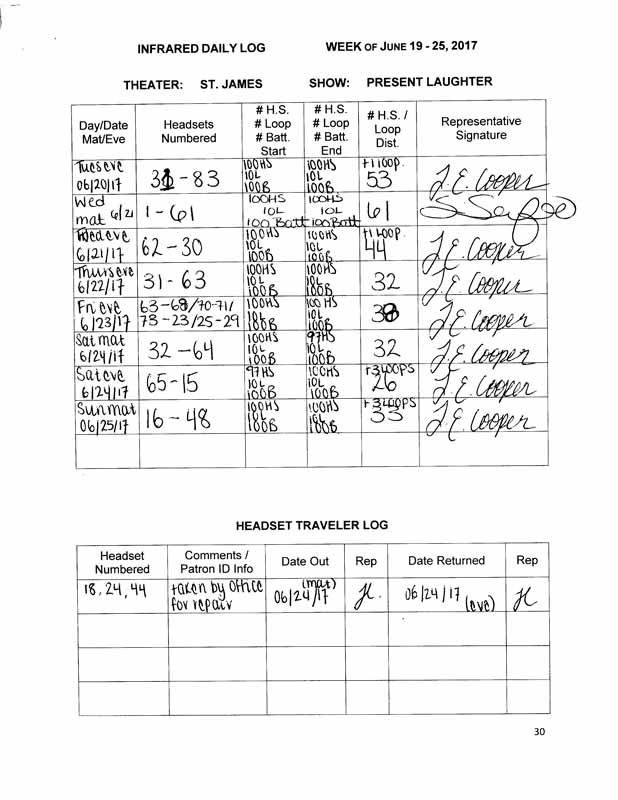 INFRARED DAILY LOG WEEK OF JUNE 19 - 25, 2017
THEATER: ST. JAMES SHOW: PRESENT LAUGHTER
Day/Date Mat/Eve Headsets Numbered # H.S. # Loop # Batt. Start # H.S. # Loop # Batt. End # H.S. / Loop Dist. Representative Signature
Tues eve 06/20/17 31 - 83 100HS 10L 100B 100HS 10L 100B +1 loop. 53 J.E. Cooper
Wed mat 6/21 1 - 61 100HS 10L 100 Batt 100HS 10L 100 Batt 61
Wed eve 6/21/17 62 - 30 100HS 10L 100B 100HS 10L 100B +1 LOOP. 44 J.E. Cooper
Thurs eve 6/22/17 31 - 63 100HS 10L 100B 100HS 10L 100B 32 J.E. Cooper
Fri eve 6/23/17 63-68/70-71/ 73-23/25-29 100HS 10L 100B 100 HS 10L 100B J.E. Cooper
Sat mat 6/24/17 32 - 64 100HS 10L 100B 97HS 10L 100B 32 J.E. Cooper
Sat eve 6/24/17 65 - 15 97HS 10L 100B 100HS 10L 100B +3 LOOPS 26 J.E. Cooper
Sun mat 06/25/17 16 - 48 100HS 10L 100B 100HS 10L 100B +3 LOOPS 33 J.E. Cooper
HEADSET TRAVELER LOG
Headset Numbered Comments / Patron ID Info Date Out Rep Date Returned Rep
18, 24, 44 taken by office for repair 06/24/17 (mat) 06/24/17 (eve)
30